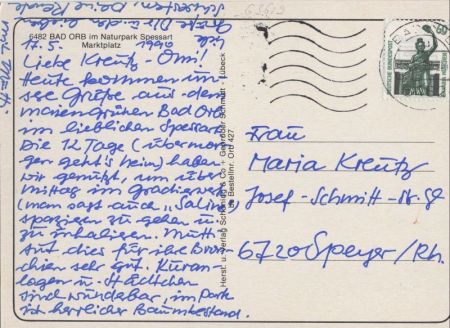 6482 BAD ORB im Naturpark Spessart
Marktplatz
17.5. 1990
Liebe Kreutz-Omi!
Heute kommen un-
sre Grüße aus dem
maiengrünen Bad Orb
im lieblichen Spessart.
Die 12 Tage (übermor-
gen geht's heim) haben
wir genutzt, um über
Mittag im Gradierwerk
(man sagt auch „Saline")
spazieren zu gehen u.
zu inhalieren. Mutti
tut dies für ihre Bron-
chien sehr gut. Kuran-
lagen u. Städtchen
sind wunderbar, im Park
ist herrlicher Baumbestand.
Herst. u. Verlag Schöning & Co + Gebrüder Schmidt · Lübeck
Bestellnr. Orb 427
60
DEUTSCHE BUNDESPOST
Frau
Maria Kreutz
Josef-Schmitt-Str. 52
6720 Speyer/Rh.